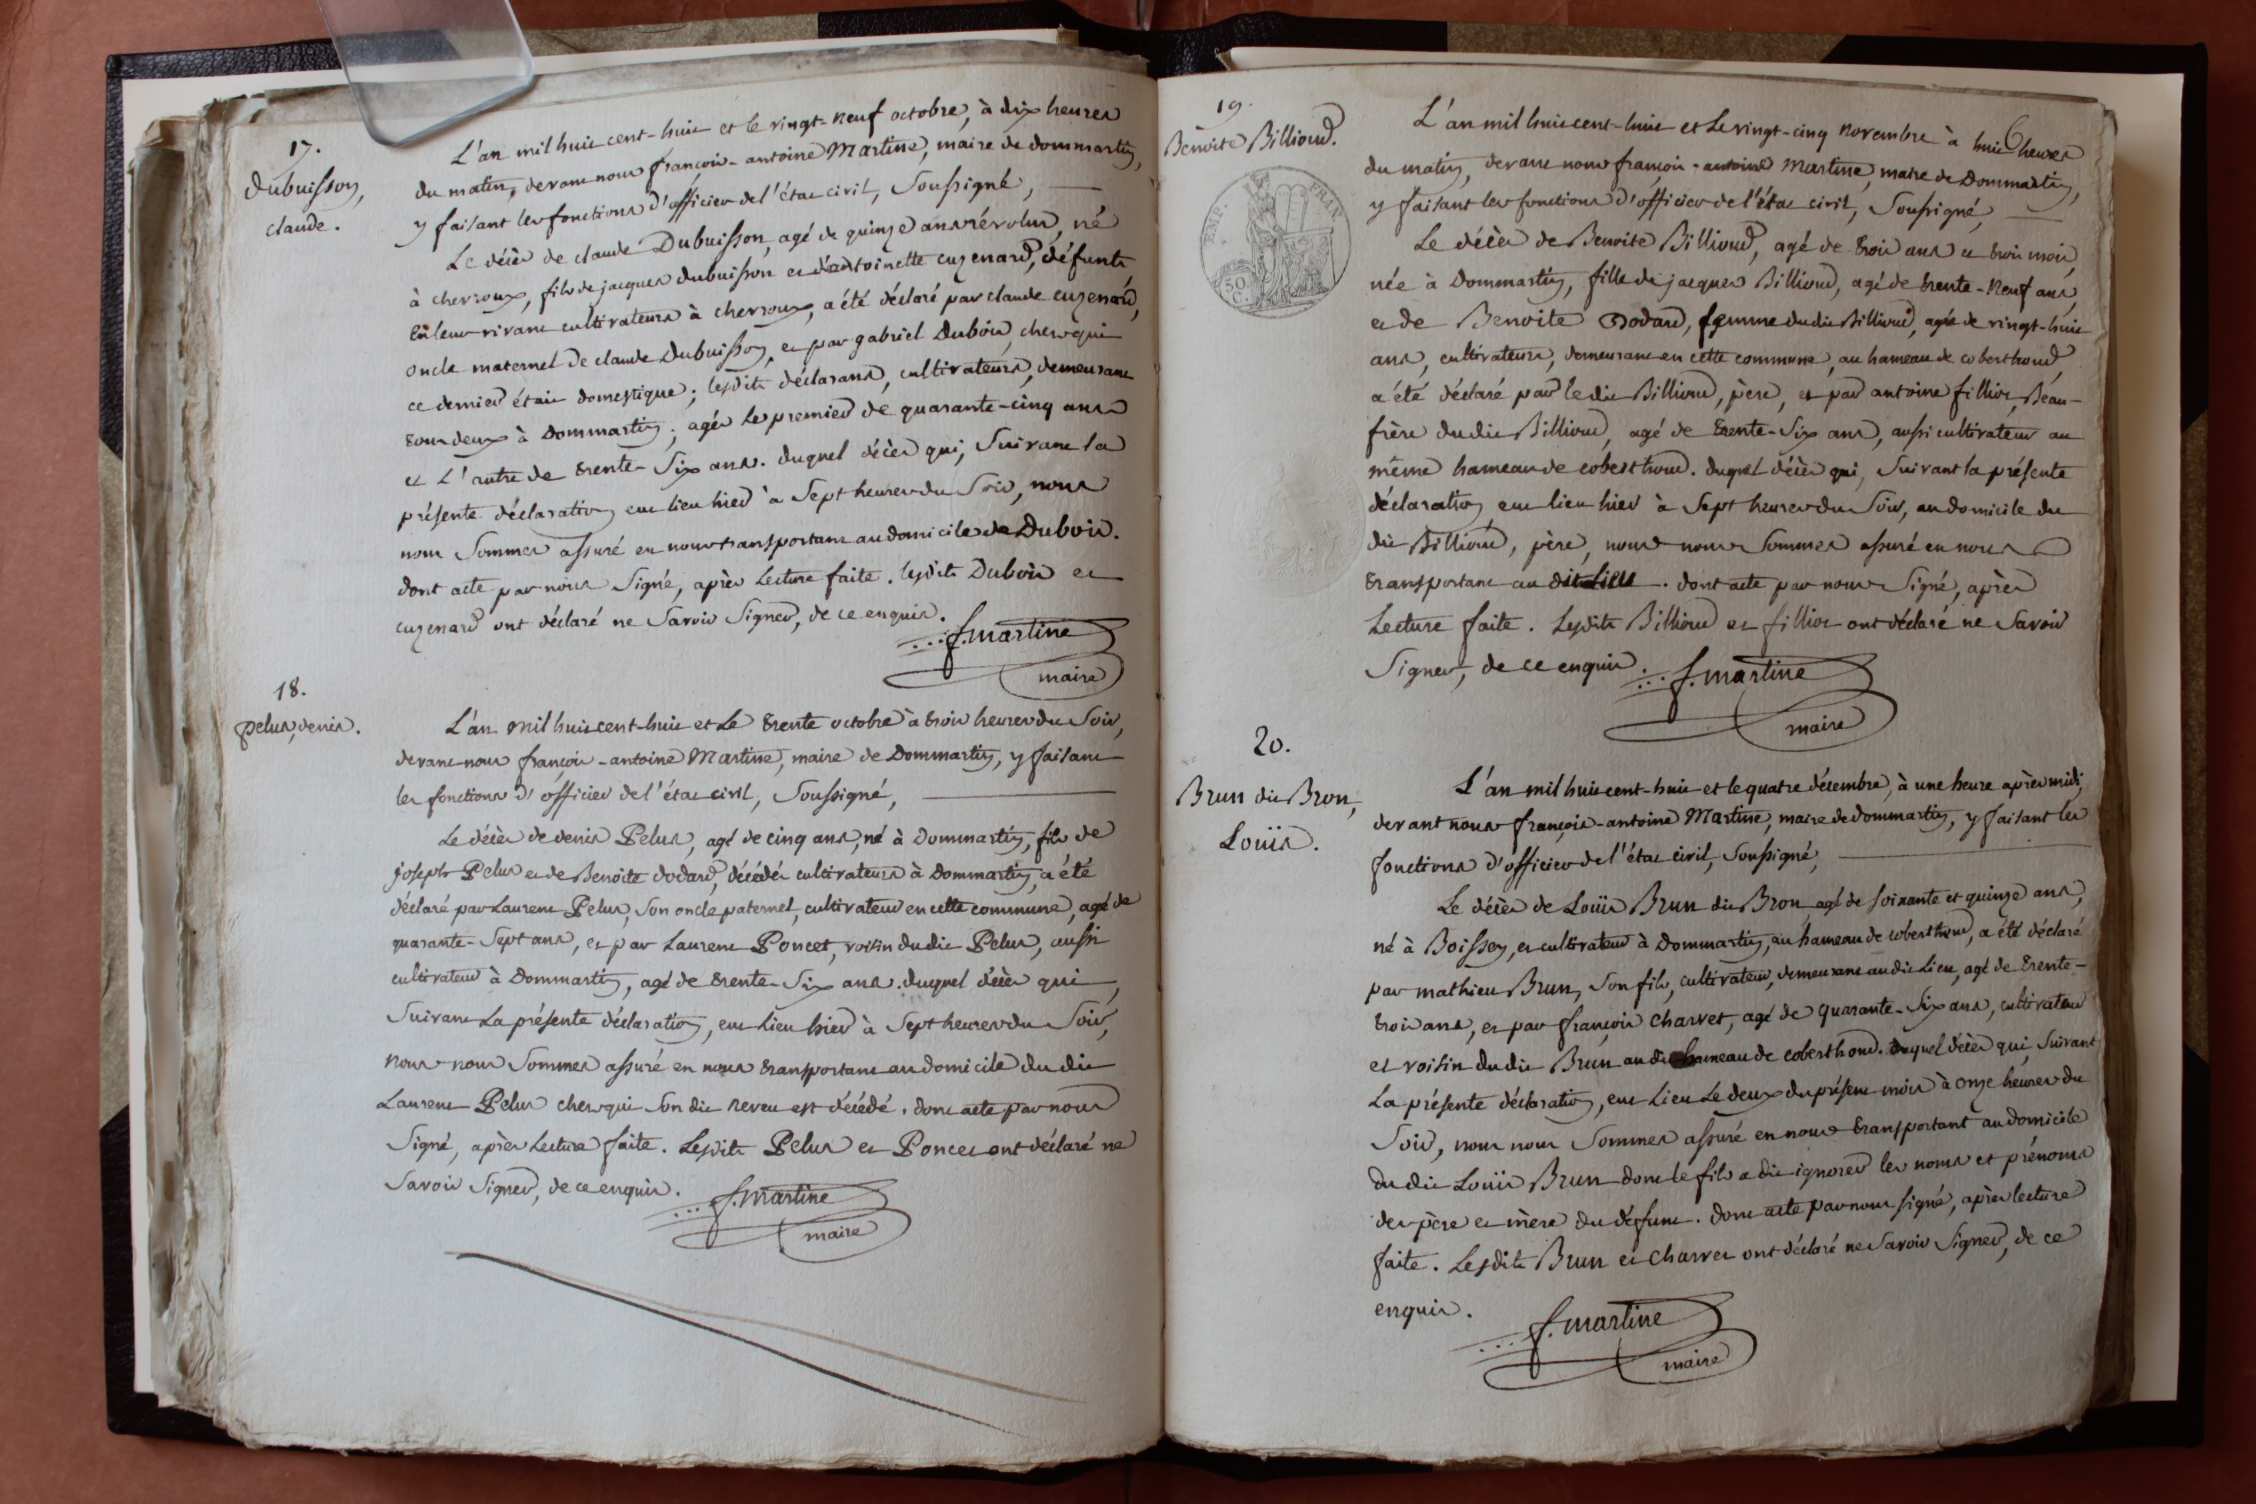 17.
Dubuisson,
claude.
L'an mil huit cent-huit et le vingt-neuf octobre, à dix heures
du matin, devant nous françois-antoine Martine, maire de dommartin,
y faisant les fonctions d'officier de l'état civil, Soussigné,
Le décès de claude Dubuisson, agé de quinze ans révolus, né
à chevroux, fils de jacques dubuisson et d'antoinette cuzenard, défunts
en leur vivant cultivateurs à chevroux, a été déclaré par claude cuzenard,
oncle maternel de claude Dubuisson, et par gabriel Dubois, chez qui
ce dernier était domestique ; lesdits déclarans, cultivateurs, demeurant
tous deux à Dommartin ; agés le premier de quarante-cinq ans
et L'autre de trente-Six ans. duquel décès qui, Suivant la
présente déclaration eut lieu hier à Sept heures du Soir, nous
nous Sommes assuré en nous transportant au domicile de Dubois.
dont acte par nous Signé, après Lecture faite. lesdits Dubois et
cuzenard ont déclaré ne Savoir Signer, de ce enquis.
f. martine
maire
18.
pelus, denis.
L'an mil huit cent-huit et Le trente octobre à trois heures du Soir,
devant nous françois-antoine Martine, maire de Dommartin, y faisant
les fonctions d'officier de l'état civil, Soussigné,
Le décès de denis Pelus, agé de cinq ans, né à Dommartin, fils de
joseph Pelus et de Benoite dodard, décédés cultivateurs à Dommartin, a été
déclaré par Laurent Pelus, Son oncle paternel, cultivateur en cette commune, agé de
quarante-Sept ans, et par Laurent Poncet, voisin dudit Pelus, aussi
cultivateur à Dommartin, agé de trente-Six ans. duquel décès qui,
Suivant La présente déclaration, eut lieu hier à Sept heures du Soir,
nous nous Sommes assuré en nous transportant au domicile du dit
Laurent Pelus chez qui Son dit neveu est décédé. dont acte par nous
Signé, après Lecture faite. Lesdits Pelus et Poncet ont déclaré ne
Savoir Signer, de ce enquis.
f. martine
maire
19.
Benoite Billioud.
EMP. FRAN.
50
C.
L'an mil huit cent-huit et Le vingt-cinq novembre à huit heures
du matin, devant nous françois-antoine Martine, maire de Dommartin,
y faisant les fonctions d'officier de l'état civil, Soussigné,
Le décès de Benoite Billioud, agé de trois ans et trois mois,
née à Dommartin, fille de jacques Billioud, agé de trente-neuf ans,
et de Benoite Dodard, femme dudit Billioud, agée de vingt-huit
ans, cultivateurs, demeurant en cette commune, au hameau de coberthoud,
a été déclaré par le dit Billioud, père, et par antoine fillior, Beau-
frère dudit Billioud, agé de trente-Six ans, aussi cultivateur au
même hameau de coberthoud. duquel décès qui, Suivant la présente
déclaration eut lieu hier à Sept heures du Soir, au domicile du
dit Billioud, père, nous nous Sommes assuré en nous
transportant au dit Lieu. dont acte par nous Signé, après
Lecture faite. Lesdits Billioud et fillior ont déclaré ne Savoir
Signer, de ce enquis.
f. martine
maire
20.
Brun dit Bron,
Louïs.
L'an mil huit cent-huit et le quatre décembre, à une heure après midi,
devant nous françois-antoine Martine, maire de dommartin, y faisant les
fonctions d'officier de l'état civil, Soussigné,
Le décès de Louïs Brun dit Bron, agé de soixante et quinze ans,
né à Boissey, et cultivateur à Dommartin, au hameau de coberthoud, a été déclaré
par mathieu Brun, Son fils, cultivateur, demeurant au dit Lieu, agé de trente-
trois ans, et par françois charvet, agé de quarante-Six ans, cultivateur
et voisin du dit Brun au dit hameau de coberthoud. duquel décès qui, Suivant
La présente déclaration, eut Lieu Le deux du présent mois à onze heures du
Soir, nous nous Sommes assuré en nous transportant au domicile
du dit Louïs Brun dont le fils a dit ignorer les noms et prénoms
des père et mère du défunt. dont acte par nous signé, après lecture
faite. Lesdits Brun et charvet ont déclaré ne Savoir Signer, de ce
enquis.
f. martine
maire